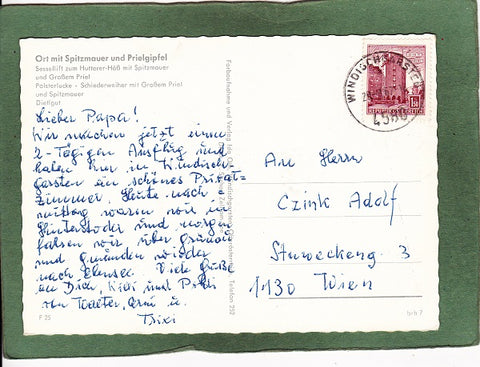 Ort mit Spitzmauer und Prielgipfel
Sessellift zum Hutterer-Höß mit Spitzmauer
und Großem Priel
Polsterlucke - Schiederweiher mit Großem Priel
und Spitzmauer
Dietlgut
Lieber Papa!
Wir machen jetzt einen
2-Tägigen Ausflug und
haben hier in Windisch-
garsten ein schönes Privat-
zimmer. Heute nach-
mittag waren wir in
Hinterstoder und morgen
fahren wir über Grünau
und Gmunden wieder
nach Ebensee. Viele Grüße
an Dich, Kiki und
von Walter, u.
Trixi
F 25
Farbaufnahme und Verlag
Telefon 252
WINDISCHGARSTEN
4580
REPUBLIK ÖSTERREICH
An Herrn
Czink Adolf
3
1130 Wien
b-h 7